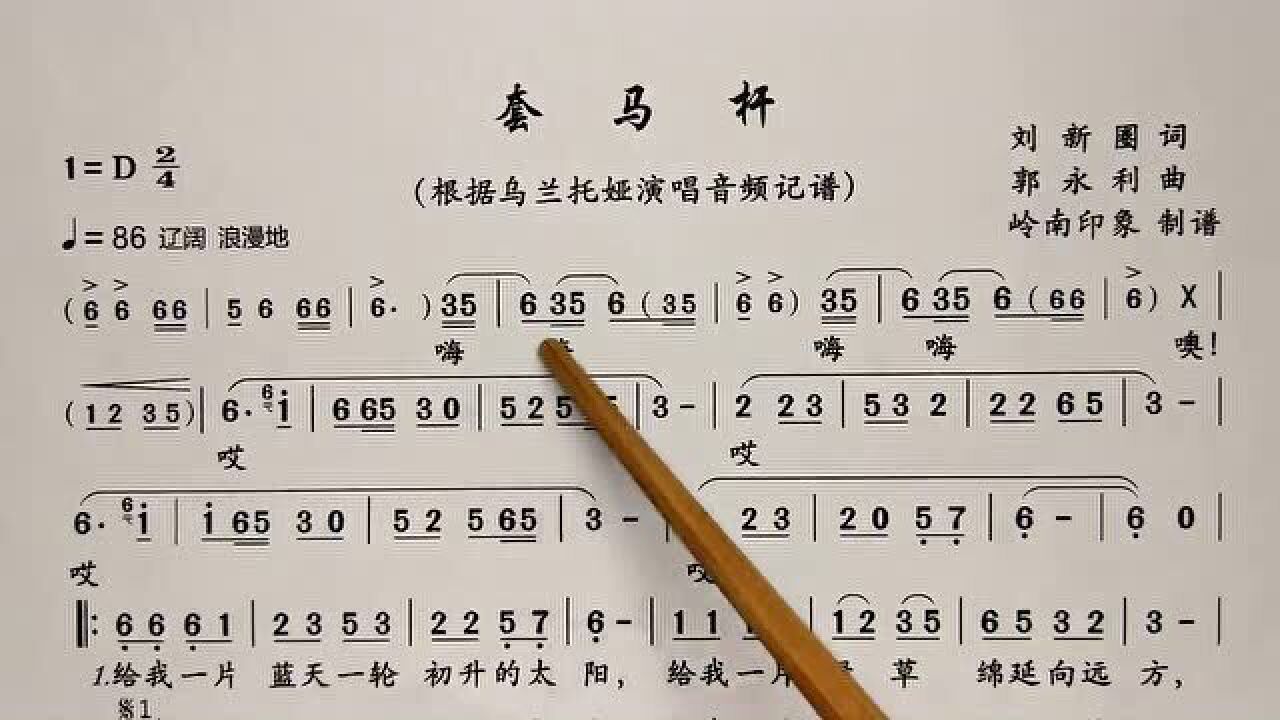 套 马 杆
1=D 2/4
(根据乌兰托娅演唱音频记谱)
刘 新 圈 词
郭 永 利 曲
岭南印象 制谱
♩=86 辽阔 浪漫地
( 6 6 66 | 5 6 66 | 6· ) 35 | 6 35 6 ( 35 | 6 6 ) 35 | 6 35 6 ( 66 | 6 ) X |
嗨 嗨 嗨 噢!
( 12 35 ) | 6· 6 i | 6 65 3 0 | 5 2 5 | 3 - | 2 2 3 | 5 3 2 | 2 2 6 5 | 3 - |
哎 哎
6· 6 i | i 65 3 0 | 5 2 5 65 | 3 - | 2 3 | 2 0 5 7 | 6 - | 6 0 |
哎 哎
‖: 6 6 6 1 | 2 3 5 3 | 2 2 5 7 | 6 - | 1 1 | 1 2 3 5 | 6 5 3 2 | 3 - |
1.给我一片 蓝天一轮 初升的太 阳, 给我一片 草 绵延向远 方,
𝄋1.